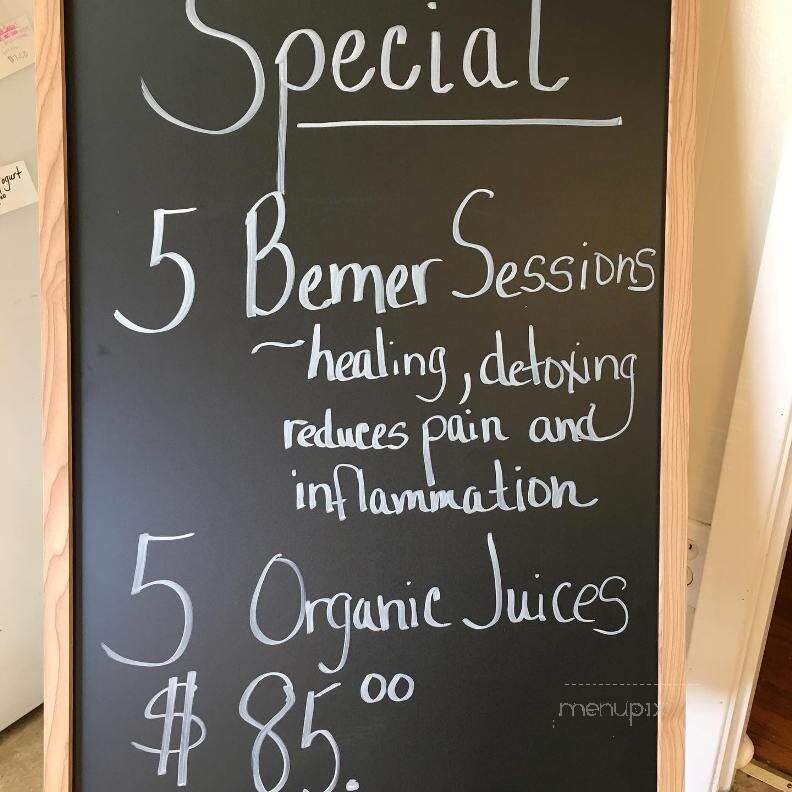 Special
5 Bemer Sessions
~healing, detoxing
reduces pain and
inflammation
5 Organic Juices
$ 85.00
ogurt
menupix